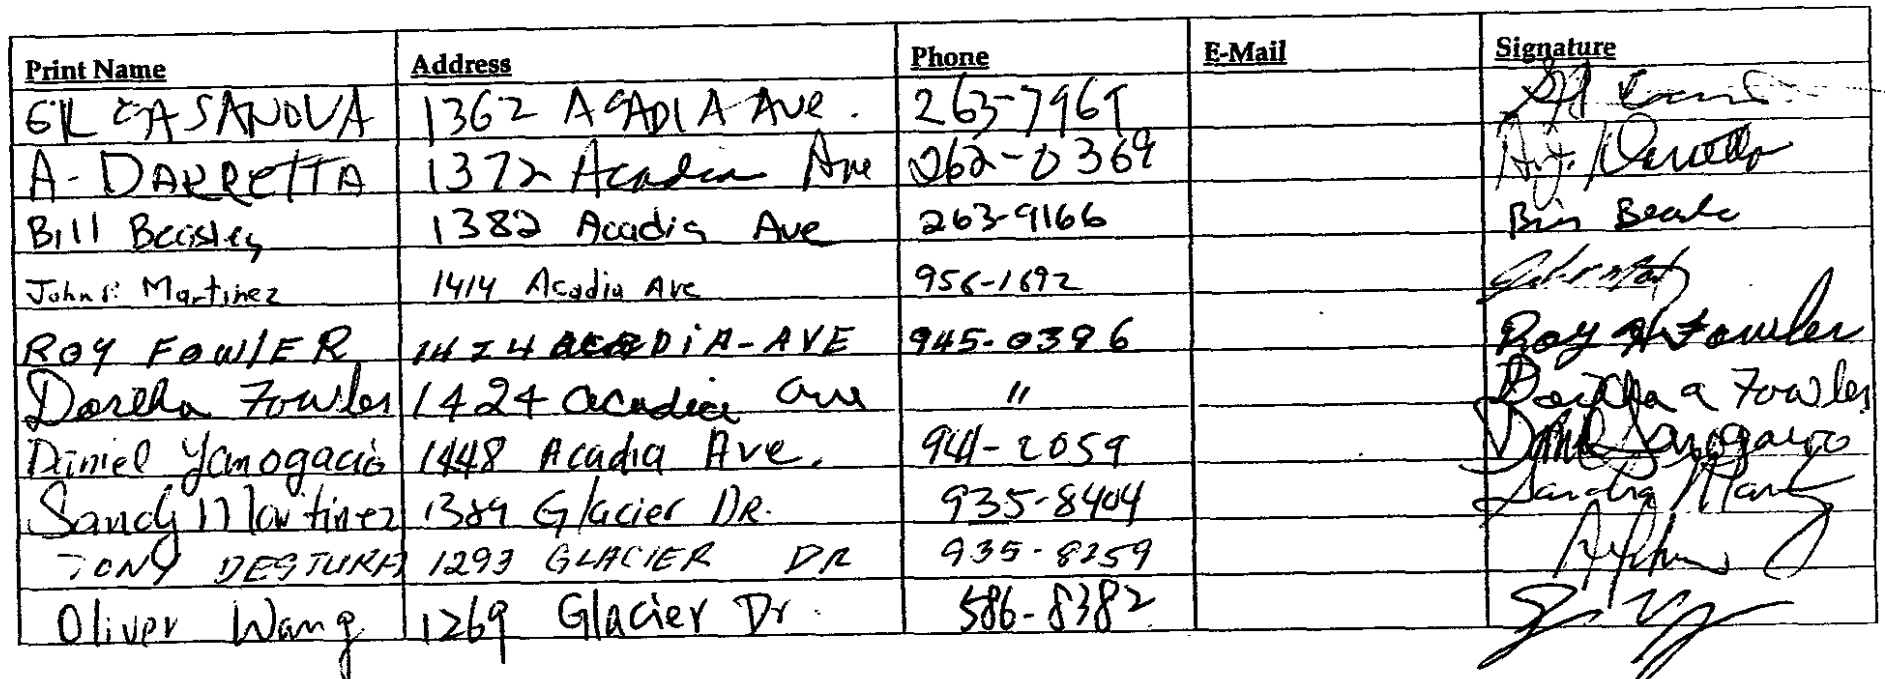 Print Name Address Phone E-Mail Signature
GIL CASANOVA 1362 ACADIA Ave. 263-7961
A- DARRETTA 1372 Acadia Ave 262-0369 A.J. Darretta
Bill Beasley 1382 Acadia Ave 263-9166 Bill Beasle
John P. Martinez 1414 Acadia Ave 956-1692
ROY FOWlER 1424 ACADiA-AVE 945-0396 Roy H Fowler
Dortha Fowler 1424 acadia ave " Dortha a Fowler
Daniel Yamogacio 1448 Acadia Ave. 941-2059
Sandy Martinez 1389 Glacier DR. 935-8404 Sandra
TONY DESTURA 1293 GLACIER DR 935-8259
Oliver Wang 1269 Glacier Dr. 586-8382